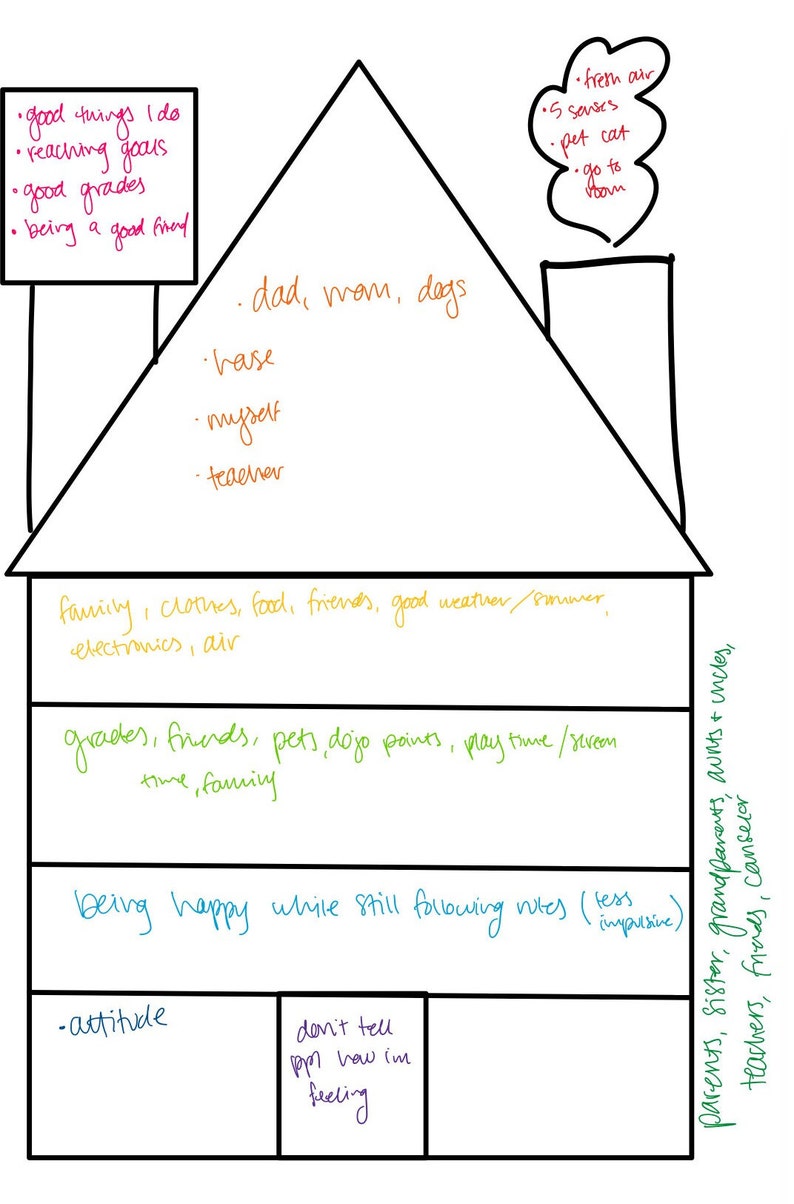 • good things I do
• reaching goals
• good grades
• being a good friend
• fresh air
• 5 senses
• pet cat
• go to
room
• dad, mom, dogs
• hose
• myself
• teacher
family, clothes, food, friends, good weather/summer,
electronics, air
grades, friends, pets, dojo points, play time/screen
time, family
being happy while still following rules (less
impulsive)
• attitude
don't tell
ppl how im
feeling
parents, sister, grandparents, aunts + uncles,
teachers, friends, canselor